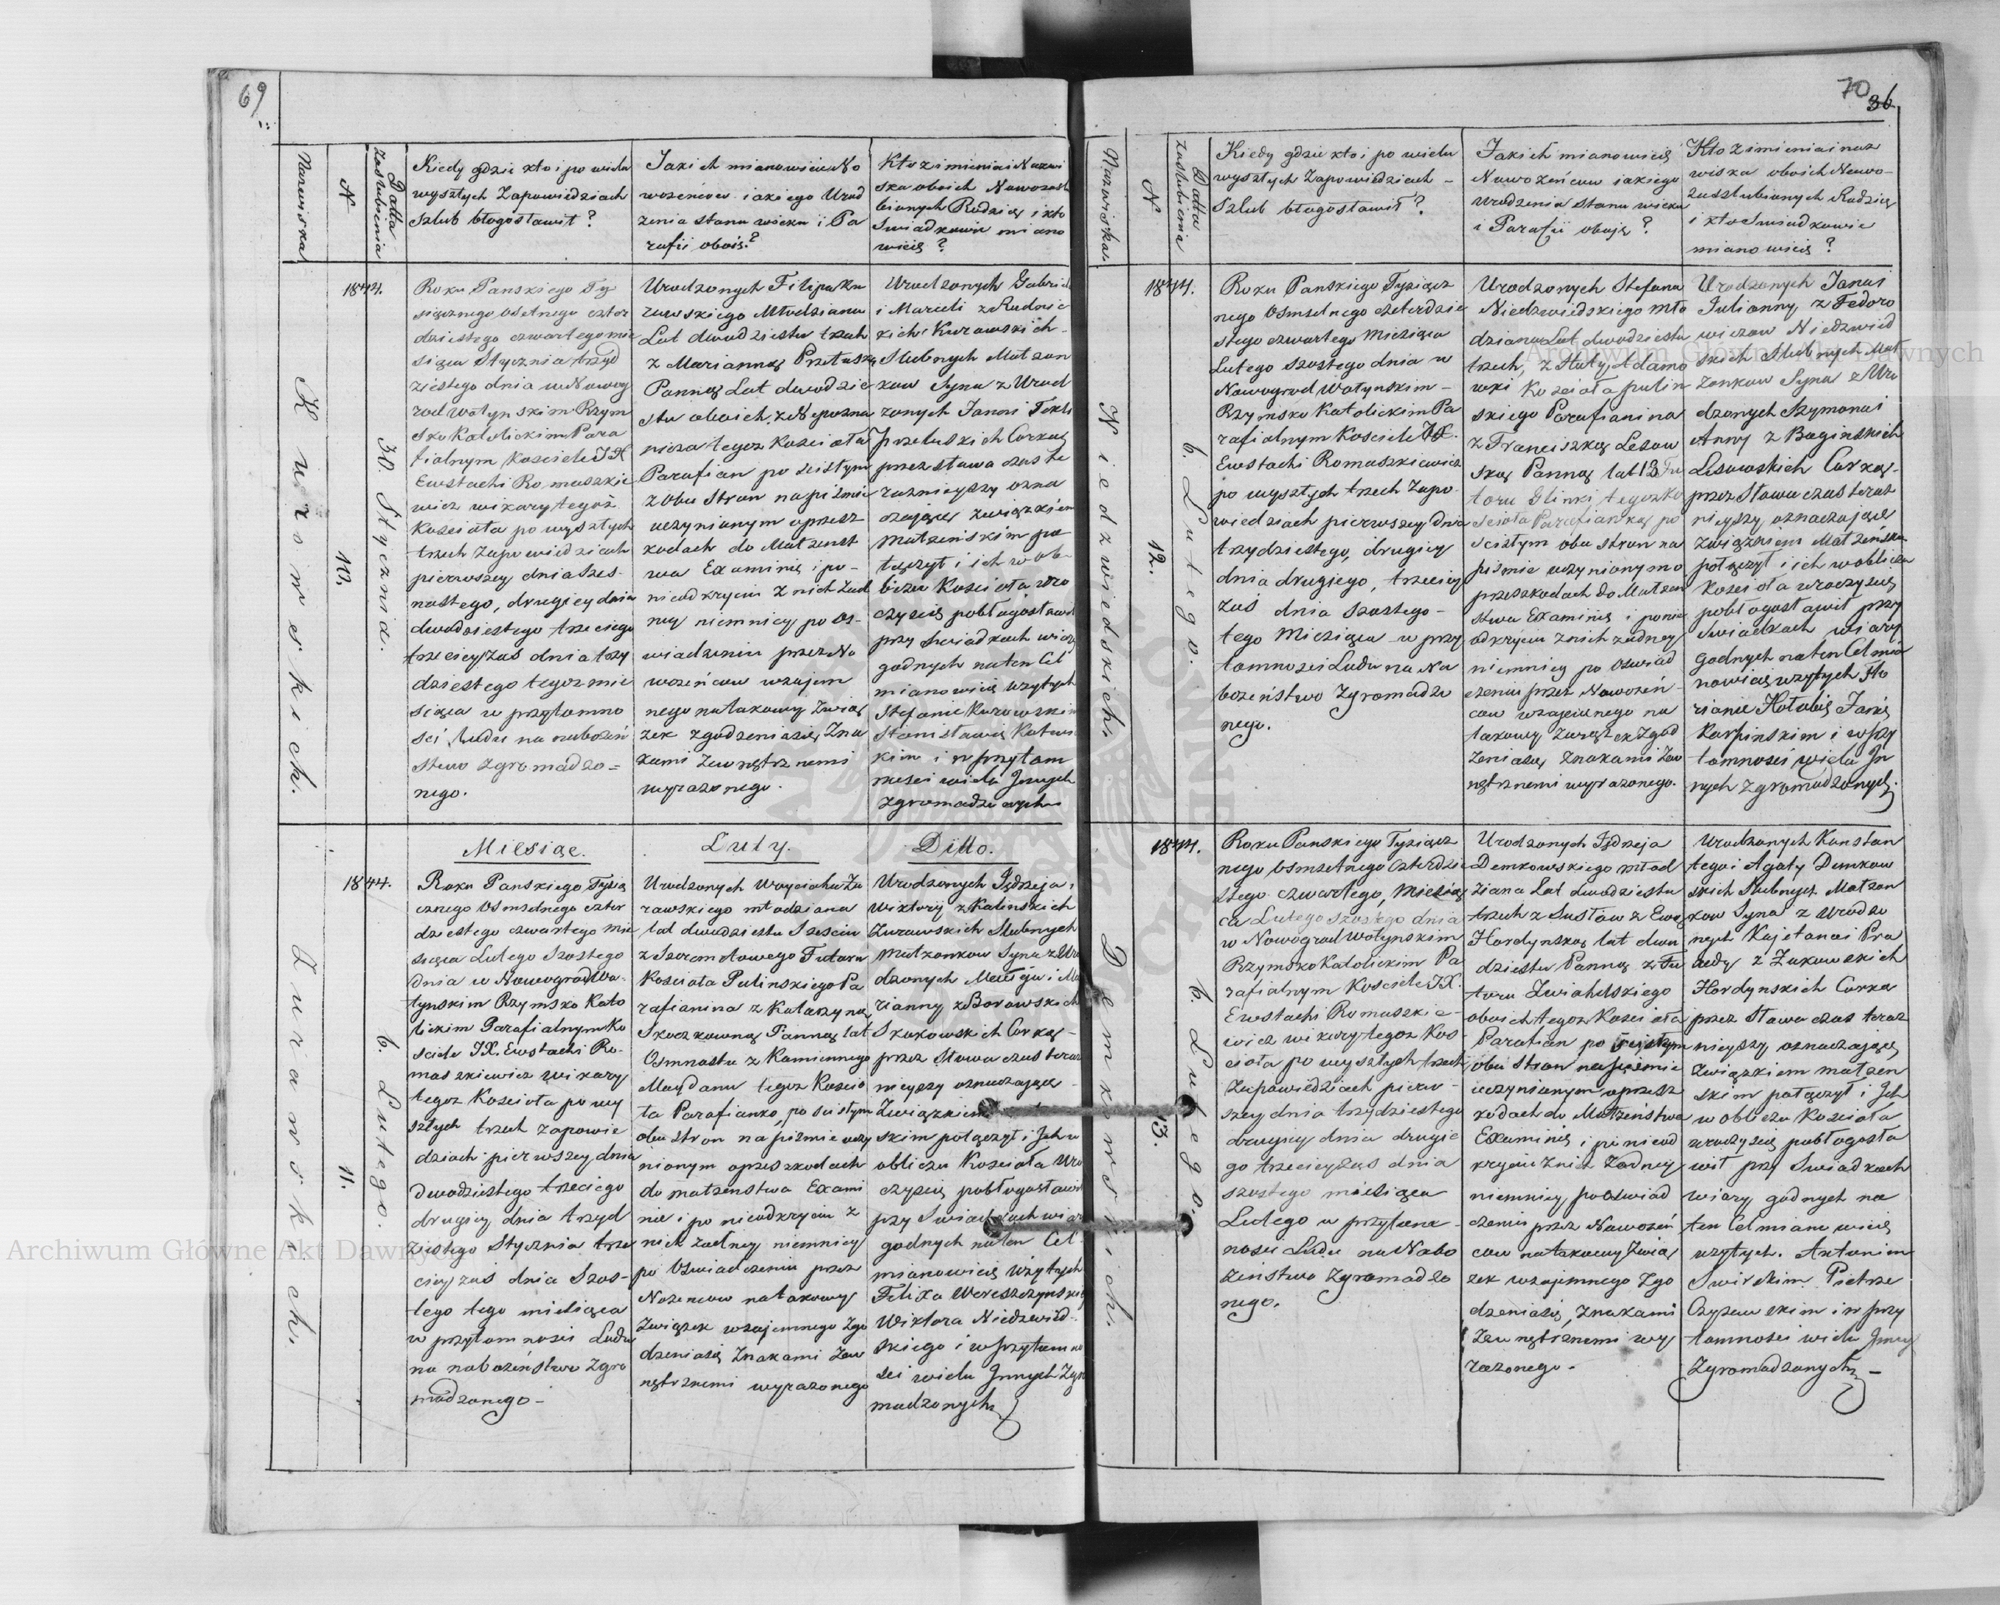 69
Nazwiska
N
Datta zaslubienia
Kiedy gdzie kto i po wielu
wyszłych Zapowiedziach
Szlub błogosławił?
Jakich mianowicie No
wożeńcow iakiego Urod
zenia stanu wieku i Pa
rafii oboie?
Kto z imienia i Nazwi
ska oboich Nowozaslu
bionych Rodzice i kto
Swiadkowie miano
wicie?
Kurowskich.
10.
1844.
30 Stycznia.
Roku Panskiego Ty
siącznego Osetnego czter
dziestego czwartego mie
siąca Stycznia trzyd
ziestego dnia w Nowog
rod Wołynskim Rzym
sko Katolickim Para
fialnym Kosciele JX
Ewstachi Romaszkie
wicz wikary tegoż
Koscioła po wyszłych
trzech Zapowiedziach
pierwszey dnia szes-
nastego, drugiey dnia
dwudziestego trzeciego
trzeciey zaś dnia trzy
dziestego tegoz mie
siąca w przytomno
sci Ludu na nabożeń
stwo zgromadzo=
nego.
Urodzonych Filipa Ku
rowskiego Młodziana
Lat dwudziestu trzech
z Maryanną Przełuską
Panną Lat dwudzie
stu oboich z Nepozna
nicza tegoz Koscioła
Parafian po scisłym
z obu Stron na pismie
uczynionym o przesz
kodach do Małzenst
wa Examinie i po-
nieodkryciu z nich żad
ney niemnicy po os-
wiadzeniu przez No
wożeńcow wzajem
nego na takowy Zwią
zek zgodzenia się, Zna
kami Zewnętrznemi
wyrazonego.
Urodzonych Gabriela
i Marceli z Rudnic
kich Kurowskich-
Slubnych Małzon
kow Syna z Urod
zonych Janai Tekli
Przełuskich Corkę
przez słowa czas te
raznieyszy ozna
czaiące związkiem
Małzenskim po
łączył i ich w ob-
liczu Koscioła uro
czyscie pobłogosławił
przy Swiadkach wiary
godnych na ten Cel
mianowicie wzytych
Stefanie Kurowskim
Stanisławie
kim i w przytom
nosci wielu Jnnych
Zgromadzonych
Miesiąc. Luty. Ditto.
Żurawskich.
11.
1844.
6. Lutego.
Roku Panskiego Tysią
cznego Osmsetnego czter
dziestego czwartego mie
siąca Lutego Szostego
dnia w Nowogrod Wo-
łynskim Rzymsko Kato
lickim Parafialnym Ko
sciele JX. Ewstachi Ro-
maszkiewicz Wikary
tegoz Koscioła po wy
szłych trzech zapowie
dziach: pierwszey dnia
Dwudziestego trzeciego
drugiey dnia trzyd
ziestego Stycznia trze
ciey zaś dnia Szos-
tego tego miesiąca
w przytomnosci Ludu
na naboźeństwo Zgro
madzonego-
Urodzonych Woyciecha Żu
rawskiego młodziana
lat dwudziestu Szesciu
z Futoru
Koscioła Pulinskiego Pa
rafianina z Katarzyną
Skoczkowną Panną lat
Osmnastu z Kamiennego
Maydanu tegoz Koscio
ła Parafianką, po scisłym
obu stron na pismie uczy
nionym o przeszkodach
do małzenstwa Exami
nie i po nieodkryciu z
nich żadney niemnicy
po Oswiadczeniu przez
Nożencow na takowy
Związek wzajemnego zgo
dzenia się Znakami Zew
nętrznemi wyrazonego
Urodzonych Jędrzeja i
Wiktoryi z Kalinskich
Żurawskich Slubnych
Małzonkow Syna z Uro
dzonych Macieja i Ma
rianny z Borowskich
Corkę-
przez słowa czas teraz
nieyszy oznaczaiące-
Związkiem
skim połączył i Jch w
obliczu Koscioła Uro
czyscie pobłogosławił
przy Swiadkach wiary
godnych na ten Cel
mianowicie Wzytych
Felixa Wereszczynskiego
Wiktora Niedzwied-
skiego i w przytomno
sci wielu Jnnych Zgro
madzonych
70
36
Nazwiska.
N
Datta zaslubienia
Kiedy gdzie kto i po wielu
wyszłych Zapowiedziach-
Szlub błogosławił?
Jakich mianowicie
Nowożeńcow iakiego
Urodzenia stanu wieku
i Parafii oboje?
Kto z imienia i naz
wiska oboich Nowo-
zaslubionych Rodzice
i kto Swiadkowie
mianowicie?
Niedzwiedskich.
12.
1844.
6. Lutego.
Roku Panskiego Tysiącz
nego Osmsetnego czterdzie
stego czwartego Miesiąca
Lutego szostego dnia w
Nowogrod Wołynskim-
Rzymsko Katolickim Pa
rafialnym Kosciele JX.
Ewstachi Romaszkiewicz
po wyszłych trzech Zapo
wiedziach pierwszey dnia
trzydziestego, drugiey
dnia drugiego, trzeciey
Zaś dnia szostego-
tego Miesiąca w przy
tomnosci Ludu na Na
bożeństwo Zgromadzo
nego.
Urodzonych Stefana
Niedzwiedskiego Mło
dziana Lat dwudziestu
trzech, z Huty Adamo
wki Koscioła Pulin
skiego Parafianina
z Franciszką Lesow
ską Panną lat 18 Fu
toru Glinki tegoz Ko
scioła Parafianką po
scisłym obu stron na
pismie uczynionym o
przeszkodach do Małzen
stwa Examinie i ponie
odkryciu z nich zadney
niemnicy po Oswiad
czeniu przez Nowożeń-
cow wzajemnego na
takowy Związek Zgod
zenia się Znakami Zew
nętrznemi wyrazonego.
Urodzonych Jana i
Julianny z Fedoro
wiczow Niedzwied
skich Slubnych Mał
Zonkow Syna z Uro
dzonych Szymona i
Anny z Baginskich
Lesowskich Corkę-
przez Słowa czas teraz
nieyszy oznaczaiące
Związkiem Małzeńskim
połączył i ich w obliczu
Koscioła uroczyscie
pobłogosławił przy
Swiadkach wiary
godnych na ten Cel mia
nowicie wzytych Flo
rianie Hołubie Janie
Karpinskim i w przy
tomnosci wielu Jn
nych Zgromadzonych.
Demkowskich.
13.
1844.
6. Lutego.
Roku Panskiego Tysiącz
nego Osmsetnego czterdzie
stego czwartego, Miesią
ca Lutego szostego dnia
w Nowogrod Wołynskim
Rzymsko Katolickim Pa
rafialnym Kosciele JX.
Ewstachi Romaszkie-
wicz wikary tegoz Kos-
cioła po wyszłych trzech
Zapowiedziach pierw-
szey dnia trzydziestego
drugiey dnia drugie
go trzeciey zas dnia
szostego miesiąca
Lutego w przytom-
nosci Ludu na Nabo
żeństwo Zgromadzo
nego.
Urodzonych Jędrzeja
Demkowskiego młod
ziana Lat dwudziestu
trzech z Susłow z Ewą
Hordynską lat dwu
dziestu Panną z Fu
toru Zwiahelskiego
oboich tegoz Koscioła
Parafian po scisłym
obu Stron na pismie
uczynionym o przesz
kodach do Małżeństwa
Examinie i po nieod
kryciu z nich żadney
niemnicy po Oswiad
czeniu przez Nowożeń
cow na takowy Zwią
zek wzajemnego zgo
dzenia się, Znakami
Zewnętrznemi wy
rażonego-
Urodzonych Konstan
tego i Agaty Demkow
skich Slubnych Małzon
kow Syna z Urodzo
nych Kajetana i Pra
xedy z Żukowskich
Hordynskich Corką
przez słowa czas teraz
nieyszy oznaczaiące
Związkiem małzen
skim połączył i Jch
w obliczu Koscioła
uroczyscie pobłogosła
wił przy Swiadkach
wiary godnych na
ten Cel mianowicie
wzytych. Antonim
Swirskim Piotrze
Czyzewskim i w przy
tomnosci wielu Jnnych
Zgromadzonych-
Archiwum Główne Akt Dawnych
Archiwum Główne Akt Dawnych